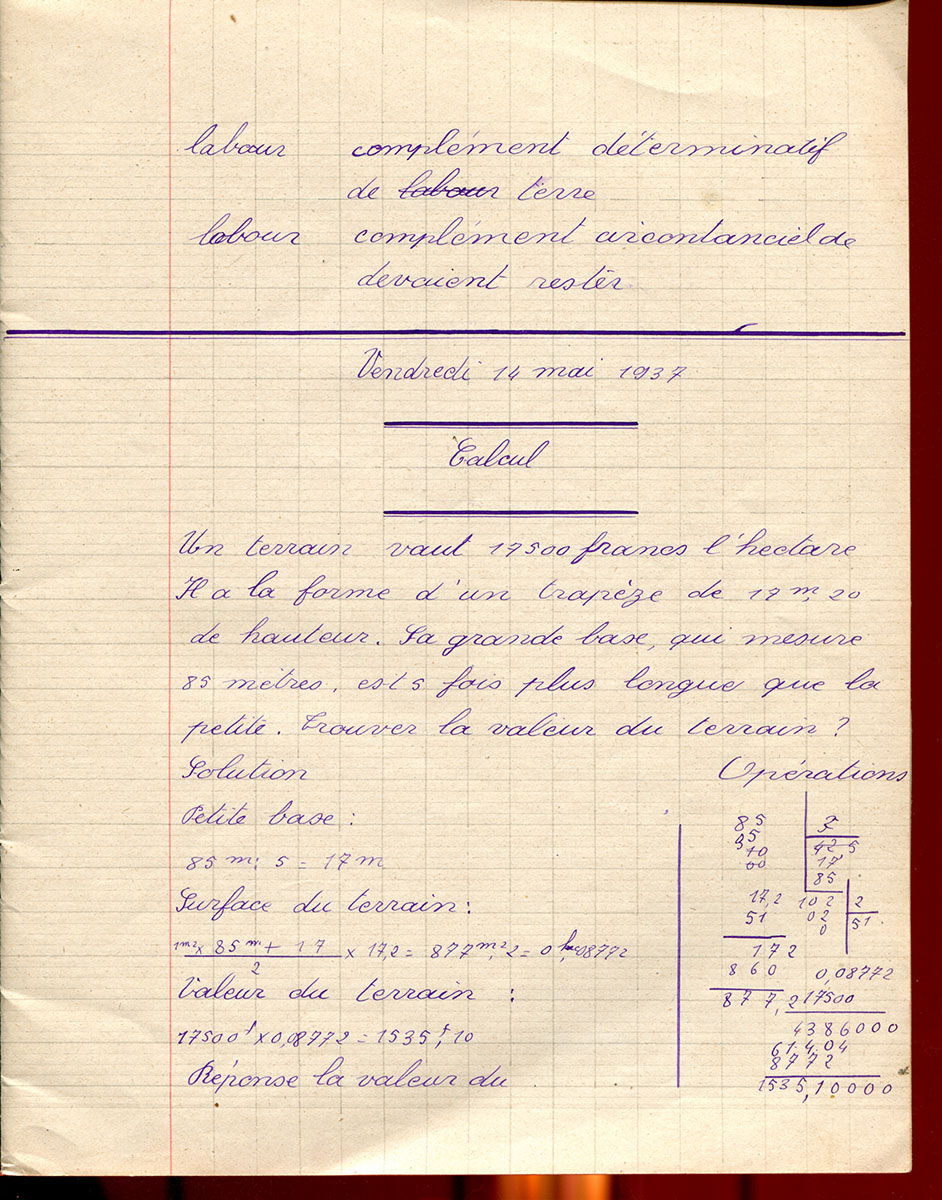 labour complément déterminatif
de labour terre
labour complément circontanciel de
devaient rester
Vendredi 14 mai 1937
Calcul
Un terrain vaut 17500 francs l'hectare
Il a la forme d'un trapèze de 17 m, 20
de hauteur. Sa grande base, qui mesure
85 mètres, est 5 fois plus longue que la
petite. Trouver la valeur du terrain ?
Solution Opérations
Petite base :
85 m : 5 = 17 m
Surface du terrain :
1m² x 85 m + 17 / 2 x 17,2 = 877 m², 2 = 0 ha,08772
Valeur du terrain :
17500 f x 0,08772 = 1535 f, 10
Réponse la valeur du
85
35
10
00
17
85
102 2
02 51
0
17,2
51
172
860
877,2
0,08772
17500
4386000
61404
8772
1535,10000